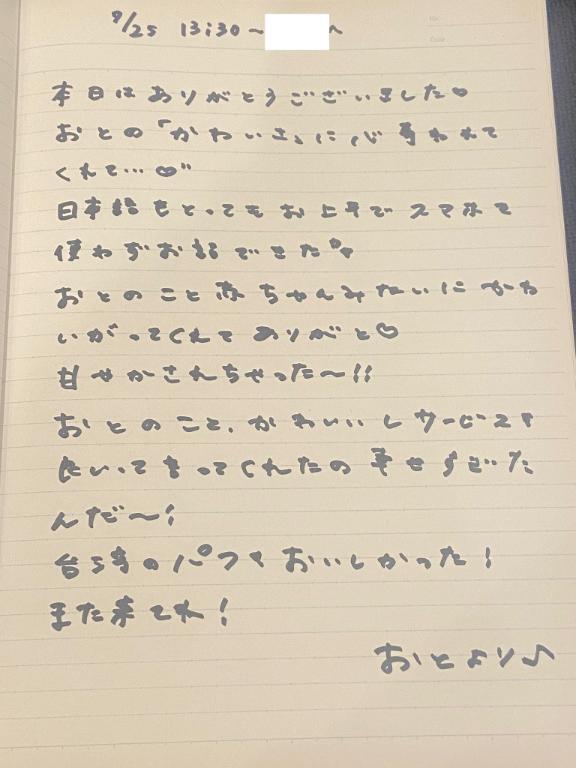 9/25 13:30~ へ
本日はありがとうございました♡
おとの「かわいさ」に心奪われて
くれて…♡"
日本語もとってもお上手でスマホて
使わずお話できた
おとのこと赤ちゃんみたいにかわ
いがってくれてありがと♡
甘やかされちゃった〜!!
おとのこと、かわいいしサービスも
良いって言ってくれたの幸せすぎた
んだ〜!
台湾のパフェおいしかった!
また来てね!
おとより♪